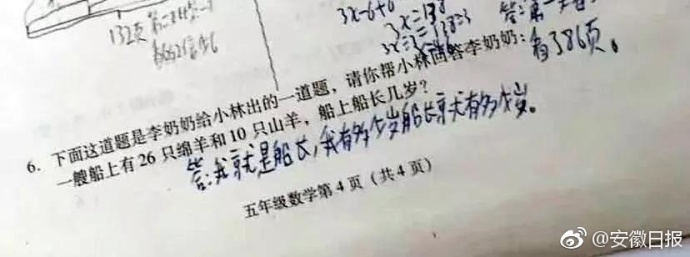 132页
3x-6+6
3x=138
3x÷3=138÷3
有386页。
6. 下面这道题是李奶奶给小林出的一道题，请你帮小林回答李奶奶：
一艘船上有 26 只绵羊和 10 只山羊，船上船长几岁？
答：我就是船长，我有多少岁船长就有多少岁。
五年级数学第 4 页（共 4 页）
@安徽日报